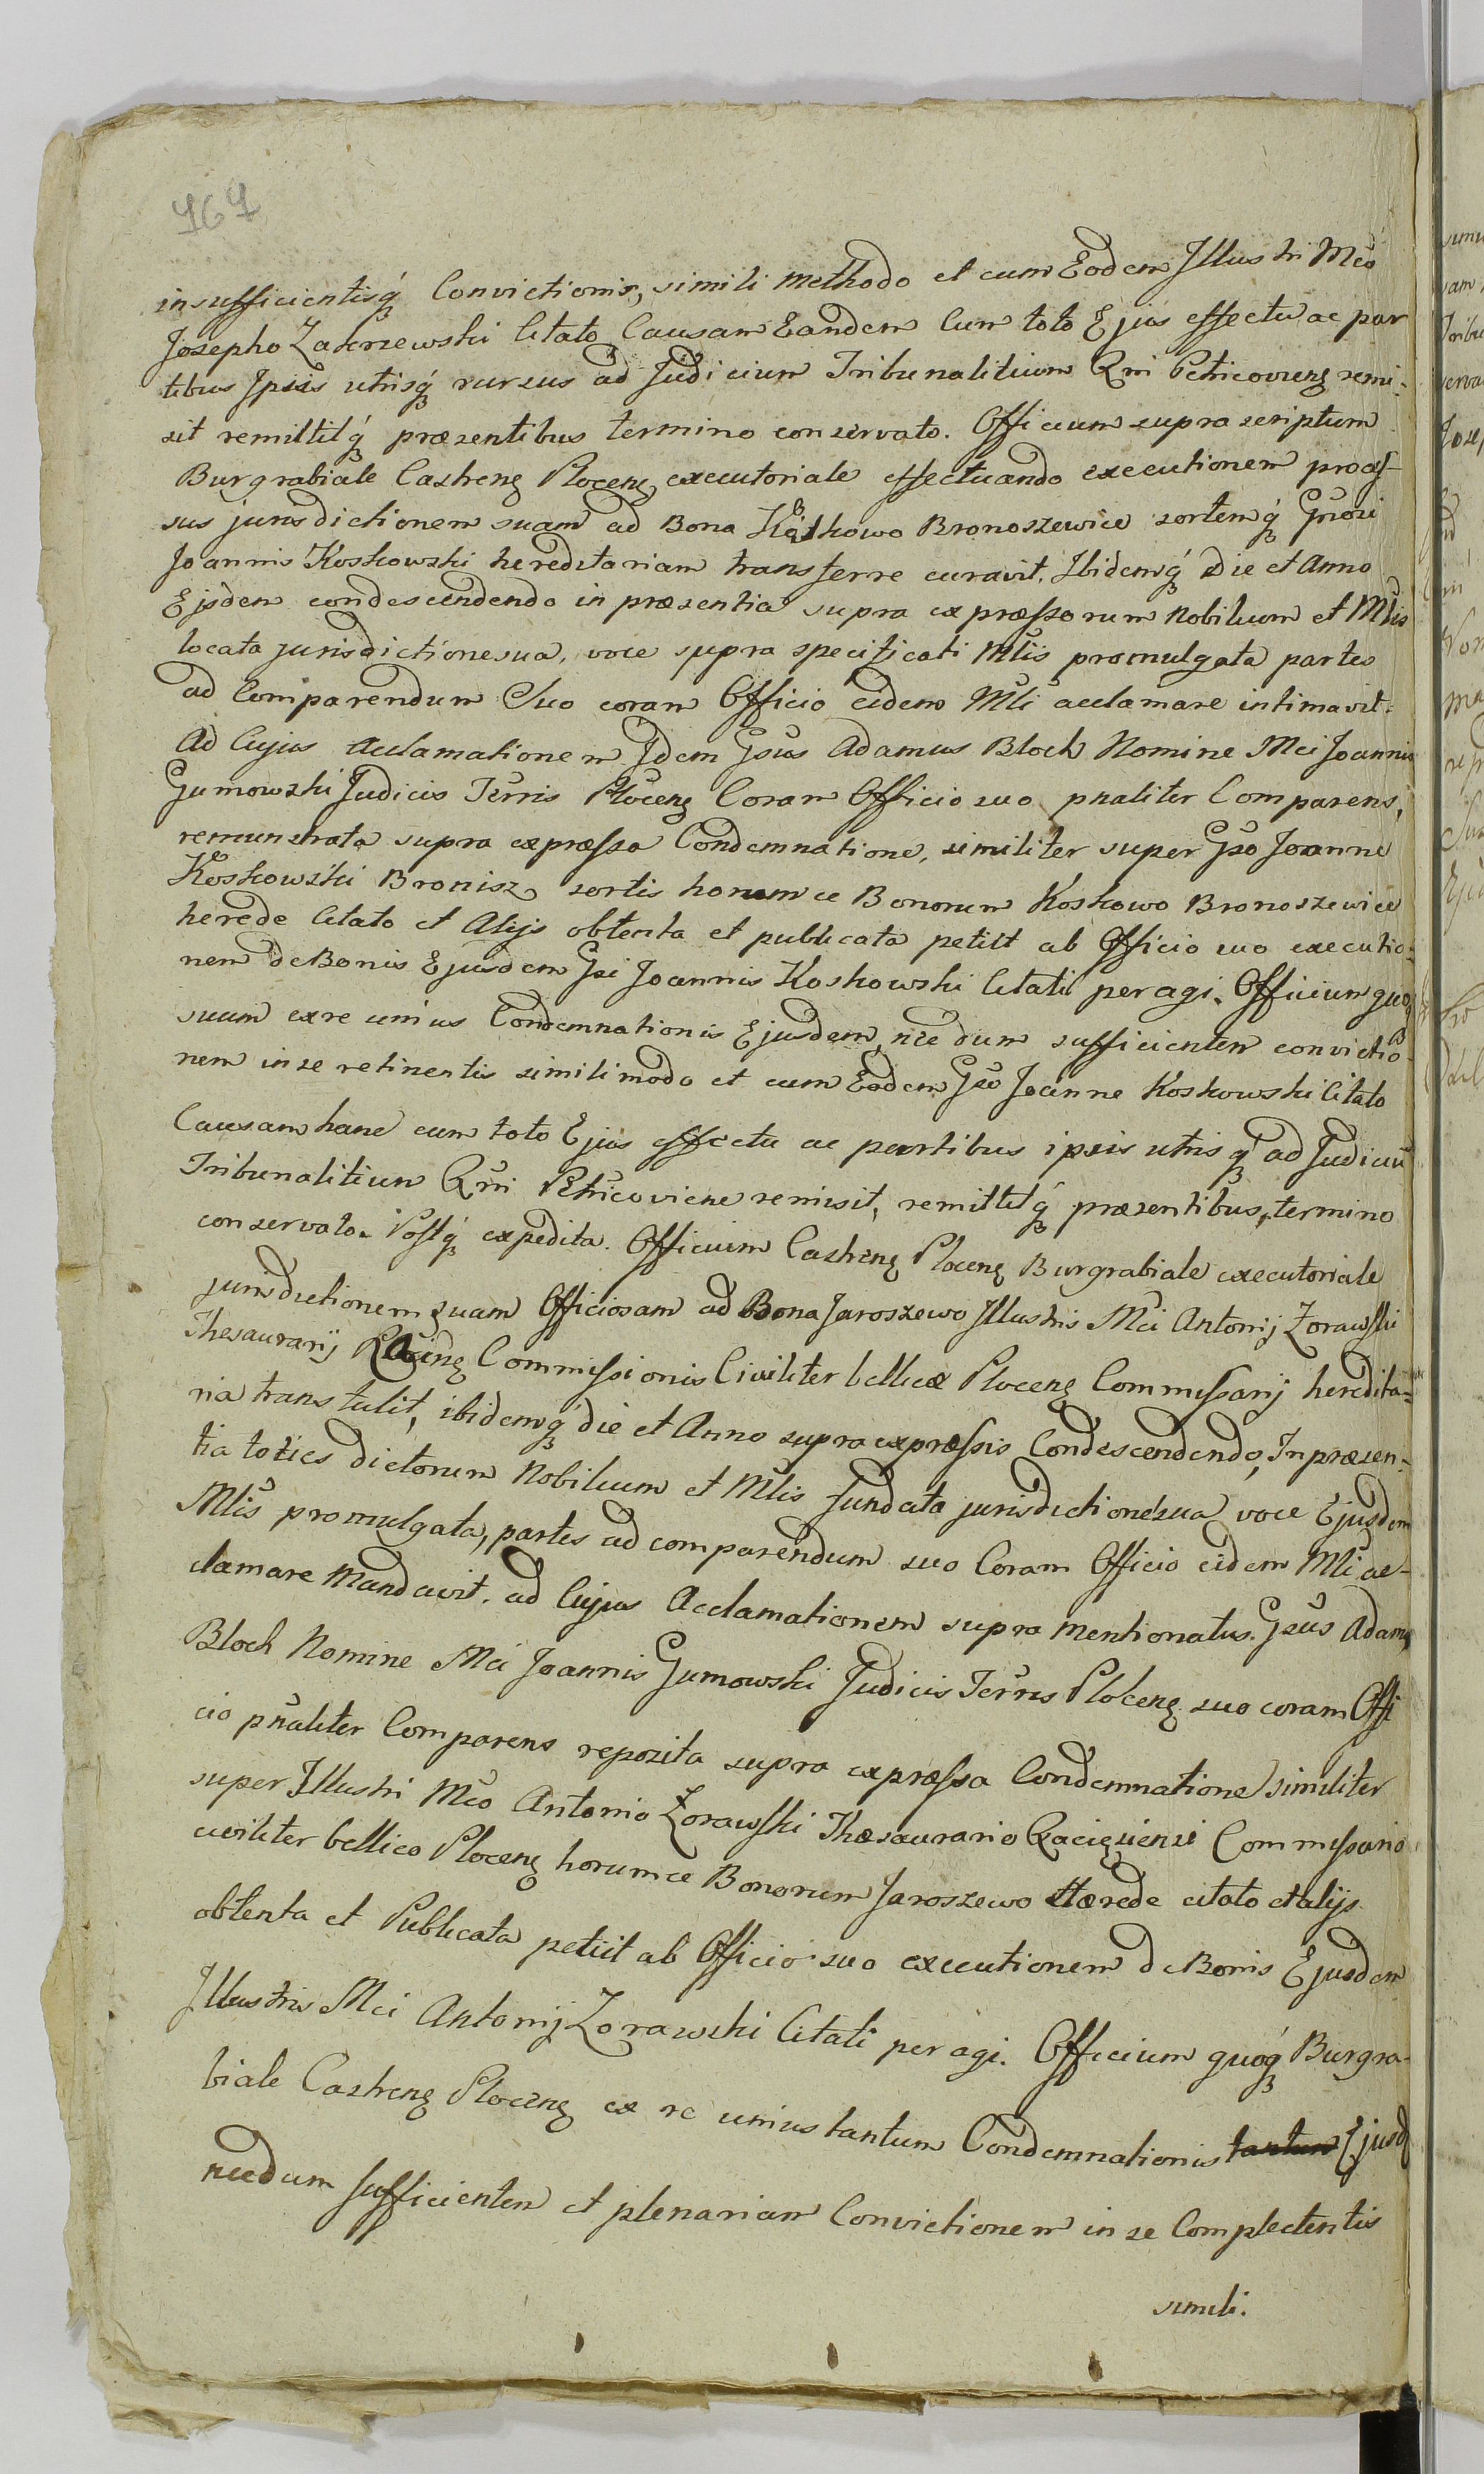 767
insufficientisq́ꝫ Convictionis, simili methodo et cum Eodem Illustri Mco
Josepho Zakrzewski Citato Causam Eandem Cum toto Ejus effectu ac par
tibus Ipsis utrisq́ꝫ rursus ad Judicium Tribunalitium Rni Petricovieng remi-
sit remittitq́ꝫ præsentibus termino conservato. Officium supra scriptum
Burgrabiale Castreng Ploceng executoriale effectuando executionem proceſ-
sus jurisdictionem suam ad Bona Koskowo Bronoszewice sortemq́ꝫ Gnosi
Joannis Koskowski hereditariam transferre curavit. Ibidemq́ꝫ die et Anno
Eisdem condescendendo in præsentia supra expræſsorum Nobilium et Mlis
locata jurisdictione sua, voce supra specificati Mlis promulgata partes
ad Comparendum Suo coram Officio eidem Mli acclamare intimavit.
Ad Cujus Acclamationem Idem Gsus Adamus Bloch Nomine Mci Joannis
Gumowski Judicis Terris Ploceng Coram Officio suo pnaliter Comparens,
remunstrata supra expræſsa Condemnatione, similiter super Gso Joanne
Koskowski Bronisz sortis horumce Bonorum Koskowo Bronoszewice
herede Citato et Alijs obtenta et publicata petiit ab Officio suo executio-
nem de Bonis Ejusdem Gsi Joannis Koskowski Citati peragi. Officium quoqꝫ
suum ex re unius Condemnationis Ejusdem, nec dum sufficientem convictio-
nem in se retinentis simili modo et cum Eodem Gso Joanne Koskowski Citato
Causam hanc cum toto Ejus effectu ac partibus ipsis utrisq́ꝫ ad Judiciu
Tribunalitium Rni Petricoviene remisit, remittitq́ꝫ præsentibus, termino
conservato. Postq́ꝫ expedita. Officium Castreng Ploceng Burgrabiale executoriale
jurisdictionem suam Officiosam ad Bona Jaroszewo Illustris Mci Antonij Zorawſki
Thesaurarij Racieng Commiſsionis Civiliter bellicæ Ploceng Commiſsarij heredita-
ria transtulit, ibidemq́ꝫ die et Anno supra expræſsis Condescendendo, In præsen-
tia toties dictorum Nobilium et Mlis fundata jurisdictione sua voce Ejusdem
Mlis promulgata, partes ad comparendum suo Coram Officio eidem Mli ac-
clamare Mandavit. ad Cujus Acclamationem supra mentionatus Gsus Adamꝫ
Bloch Nomine Mci Joannis Gumowski Judicis Terris Ploceng suo coram Offi
cio pnaliter Comparens reposita supra expræſsa Condemnatione similiter
super Illustri Mco Antonio Zorawſki Thæsaurario Raciąziensi Commiſsario
civiliter bellico Ploceng horumce Bonorum Jaroszewo Hærede citato et alijs
obtenta et Publicata petiit ab Officio suo executionem de Bonis Ejusdem
Illustris Mci Antonij Zorawski Citati peragi. Officium quoq́ꝫ Burgra-
biale Castreng Ploceng ex re unius tantum Condemnationis tantum Ejusd
necdum sufficientem et plenariam Convictionem in se Complectentis
simili.